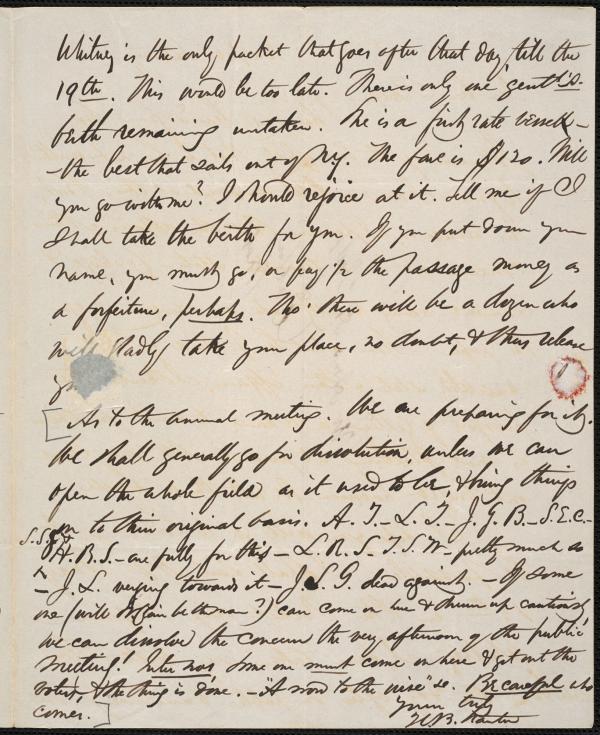 Whitney is the only packet that goes after that day, till the
19th. This would be too late. There is only one gentl's
birth remaining untaken. She is a first rate vessel -
- the best that sails out of N.Y. The fare is $120. Will
you go with me? I should rejoice at it. Tell me if I
shall take the berth for you. If you put down your
name, you must go, or pay 1/2 the passage money as
a forfeiture, perhaps. Tho' there will be a dozen who
will gladly take your place, no doubt, & thus release
[As to the annual meeting. We are preparing for it.
We shall generally go for dissolution, unless we can
open the whole field as it used to be, & bring things
on to their original basis. A. T. - L. T. - J. G. B. - S. E. C. -
S. S.
H. B. S. - are fully for this - L. R. S. T. S. W. - pretty much so
- J. L. verging towards it - J. S. G. dead against. - If some
one (will be the man?) can come on here & cautiously
we can dissolve the concern the very afternoon of the public
meeting! Enter nos, some one must come on here & get out the
voters, & the thing is done. - "A word to the wise" &c. Be careful who
comes.]
Yours truly
H. B. Stanton